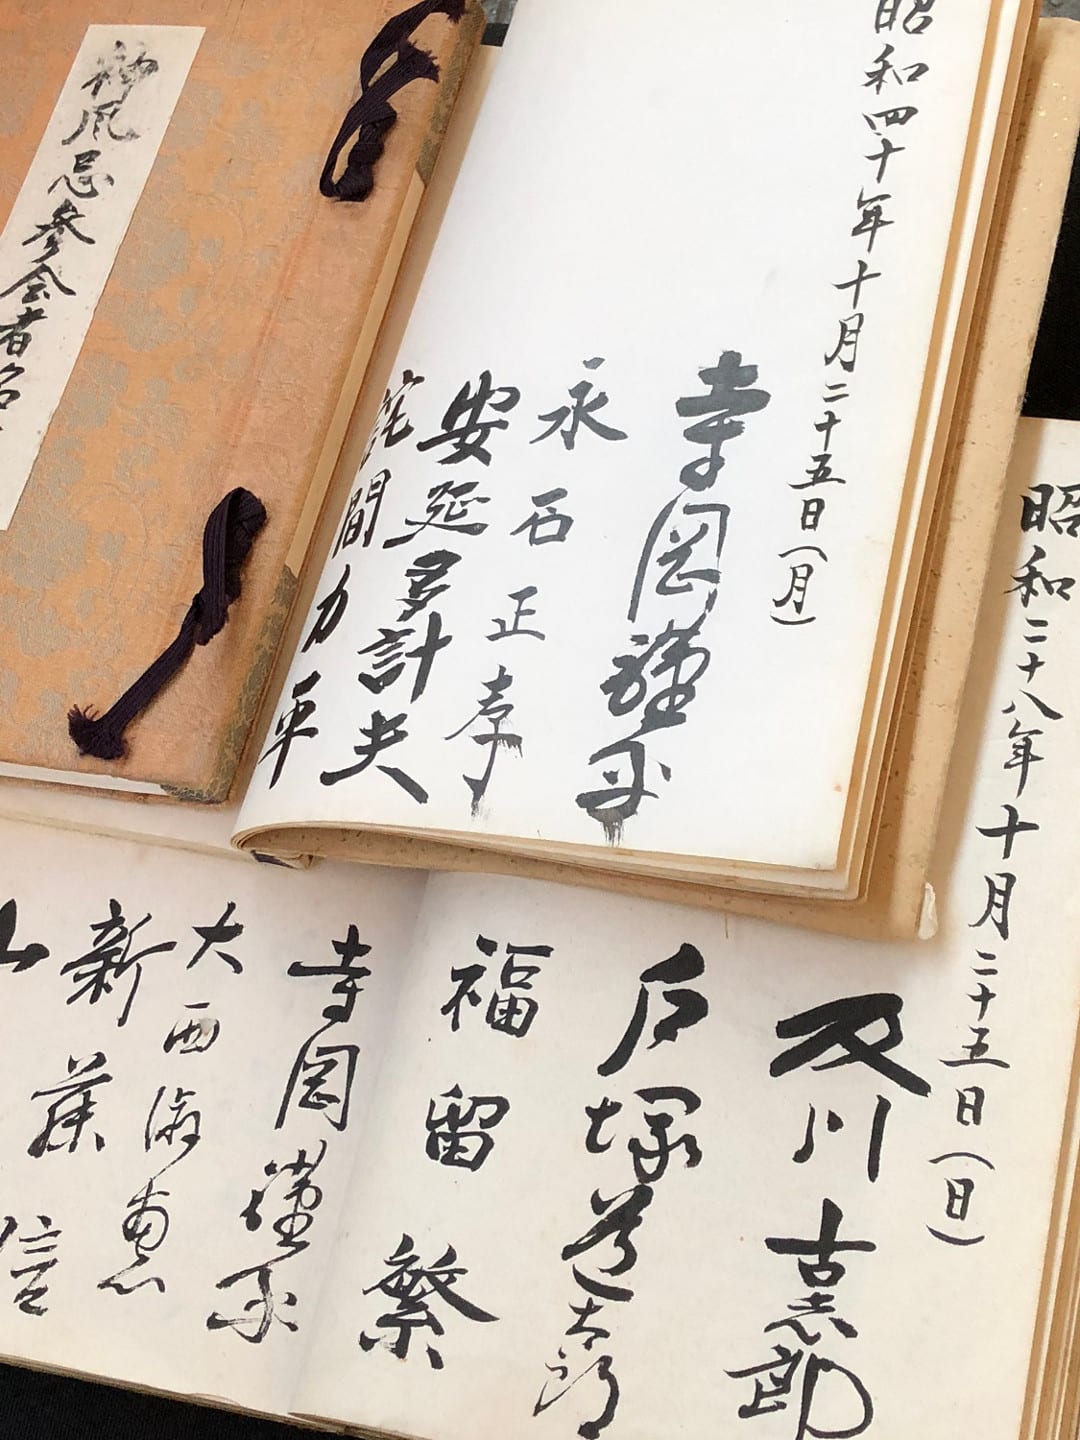 神風忌参会者名
昭和四十年十月二十五日(月)
寺岡謹平
永石正孝
安延多計夫
詫間力平
昭和二十八年十月二十五日(日)
及川古志郎
戸塚道太郎
福留繁
寺岡謹平
大西淑恵
新藤信
山